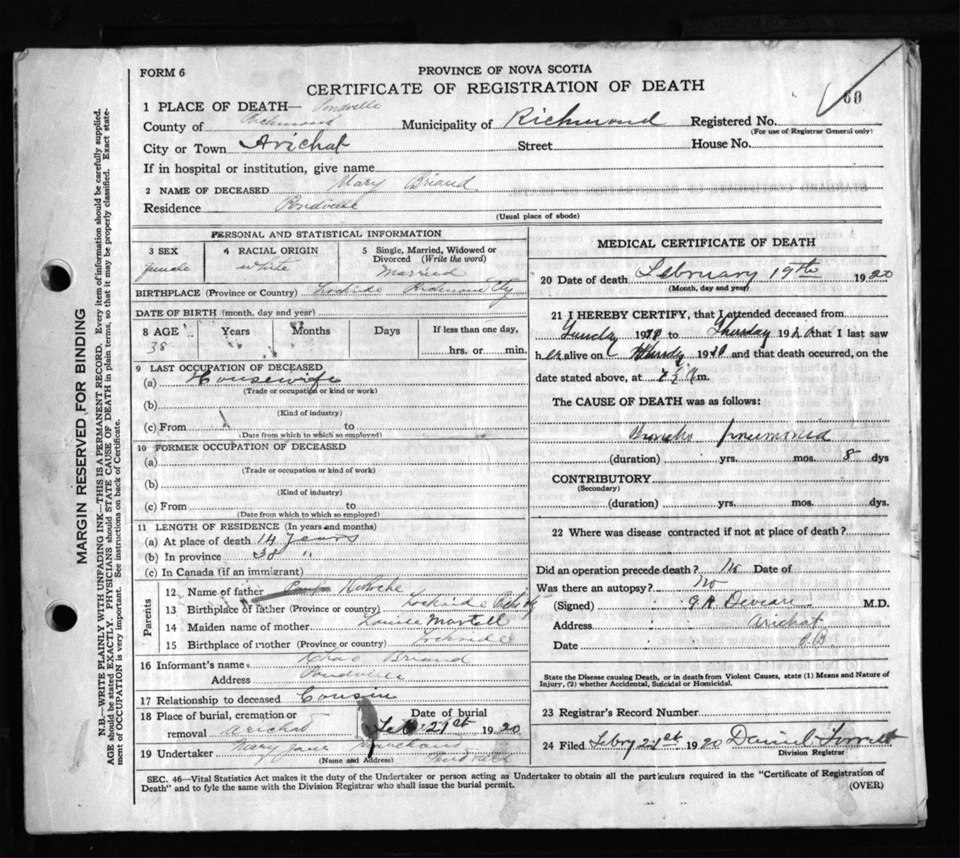 FORM 6
PROVINCE OF NOVA SCOTIA
CERTIFICATE OF REGISTRATION OF DEATH
60
1 PLACE OF DEATH— Pondville
County of Richmond Municipality of Richmond Registered No.
(For use of Registrar General only)
City or Town Arichat Street House No.
If in hospital or institution, give name
2 NAME OF DECEASED Mary Briand
Residence Pondville
(Usual place of abode)
PERSONAL AND STATISTICAL INFORMATION
3 SEX
female
4 RACIAL ORIGIN
white
5 Single, Married, Widowed or Divorced (Write the word)
Married
BIRTHPLACE (Province or Country) Richmond Cty
DATE OF BIRTH (month, day and year)
8 AGE Years Months Days If less than one day,
38 hrs. or min.
9 LAST OCCUPATION OF DECEASED
(a) Housewife
(Trade or occupation or kind or work)
(b)
(Kind of industry)
(c) From to
(Date from which to which so employed)
10 FORMER OCCUPATION OF DECEASED
(a)
(Trade or occupation or kind of work)
(b)
(Kind of industry)
(c) From to
(Date from which to which so employed)
11 LENGTH OF RESIDENCE (In years and months)
(a) At place of death 14 years
(b) In province 38 "
(c) In Canada (if an immigrant)
Parents
12 Name of father
13 Birthplace of father (Province or country)
14 Maiden name of mother Louise Martell
15 Birthplace of mother (Province or country)
16 Informant's name Chas Briand
Address Pondville
17 Relationship to deceased Cousin
18 Place of burial, cremation or removal Arichat
Date of burial
Feb 21st 1920
19 Undertaker Mary Jane Pondville
(Name and Address)
MEDICAL CERTIFICATE OF DEATH
20 Date of death February 19th 1920
(Month, day and year)
21 I HEREBY CERTIFY, that I attended deceased from
Sunday 19 to Thursday 1920 that I last saw
h er alive on 1920 and that death occurred, on the
date stated above, at m.
The CAUSE OF DEATH was as follows:
Broncho pneumonia
(duration) yrs. mos. 8 dys
CONTRIBUTORY
(Secondary)
(duration) yrs. mos. dys.
22 Where was disease contracted if not at place of death?
Did an operation precede death? No Date of
Was there an autopsy? No
(Signed) M.D.
Address Arichat
Date
State the Disease causing Death, or in death from Violent Causes, state (1) Means and Nature of Injury, (2) whether Accidental, Suicidal or Homicidal.
23 Registrar's Record Number
24 Filed Febry 21st 1920 Daniel
Division Registrar
SEC. 46—Vital Statistics Act makes it the duty of the Undertaker or person acting as Undertaker to obtain all the particulars required in the "Certificate of Registration of
Death" and to fyle the same with the Division Registrar who shall issue the burial permit. (OVER)
MARGIN RESERVED FOR BINDING
N.B.—WRITE PLAINLY WITH UNFADING INK—THIS IS A PERMANENT RECORD. Every item of information should be carefully supplied.
AGE should be stated EXACTLY. PHYSICIANS should STATE CAUSE OF DEATH in plain terms, so that it may be properly classified. Exact state-
ment of OCCUPATION is very important. See instructions on back of Certificate.